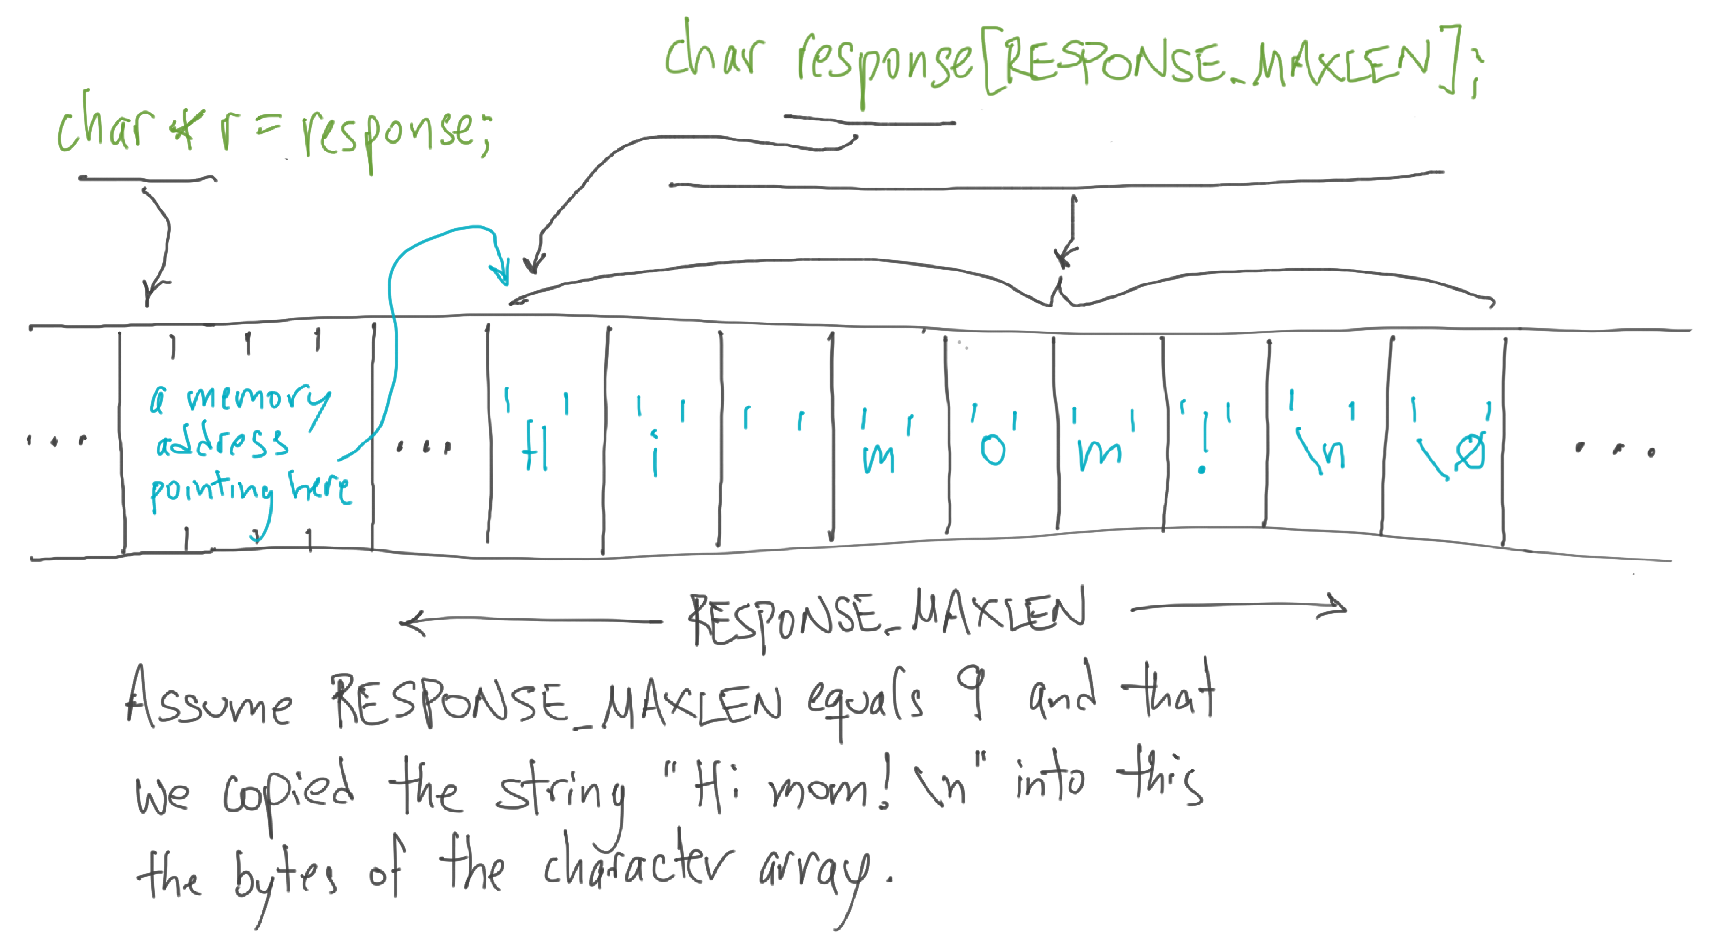 char response[RESPONSE_MAXLEN];
char * r = response;
a memory
address
pointing here
... ... 'H' 'i' ' ' 'm' 'o' 'm' '!' '\n' '\0' ...
RESPONSE_MAXLEN
Assume RESPONSE_MAXLEN equals 9 and that
we copied the string "Hi mom!\n" into this
the bytes of the character array.